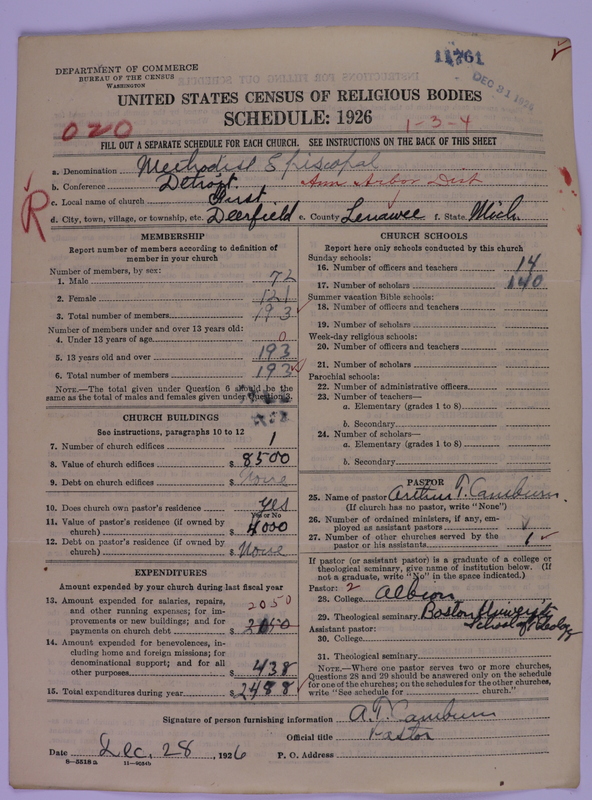 DEPARTMENT OF COMMERCE
BUREAU OF THE CENSUS
WASHINGTON
11761
DEC 31 1926
UNITED STATES CENSUS OF RELIGIOUS BODIES
SCHEDULE: 1926
020
1-3-4
FILL OUT A SEPARATE SCHEDULE FOR EACH CHURCH. SEE INSTRUCTIONS ON THE BACK OF THIS SHEET
a. Denomination Methodist Episcopal
b. Conference Detroit Ann Arbor Dist
R
c. Local name of church First
d. City, town, village, or township, etc. Deerfield e. County Lenawee f. State Mich.
MEMBERSHIP
Report number of members according to definition of
member in your church
Number of members, by sex:
1. Male 72
2. Female 121
3. Total number of members 193
Number of members under and over 13 years old:
4. Under 13 years of age 0
5. 13 years old and over 193
6. Total number of members 193
NOTE.—The total given under Question 6 should be the
same as the total of males and females given under Question 3.
CHURCH BUILDINGS
See instructions, paragraphs 10 to 12
7. Number of church edifices 1
8. Value of church edifices $ 8500
9. Debt on church edifices $ None
10. Does church own pastor's residence yes
Yes or No
11. Value of pastor's residence (if owned by
church) $ 4000
12. Debt on pastor's residence (if owned by
church) $ None
EXPENDITURES
Amount expended by your church during last fiscal year
13. Amount expended for salaries, repairs,
and other running expenses; for im-
provements or new buildings; and for
payments on church debt $ 2050
14. Amount expended for benevolences, in-
cluding home and foreign missions; for
denominational support; and for all
other purposes $ 438
15. Total expenditures during year $ 2488
CHURCH SCHOOLS
Report here only schools conducted by this church
Sunday schools:
16. Number of officers and teachers 14
17. Number of scholars 140
Summer vacation Bible schools:
18. Number of officers and teachers
19. Number of scholars
Week-day religious schools:
20. Number of officers and teachers
21. Number of scholars
Parochial schools:
22. Number of administrative officers
23. Number of teachers—
a. Elementary (grades 1 to 8)
b. Secondary
24. Number of scholars—
a. Elementary (grades 1 to 8)
b. Secondary
PASTOR
25. Name of pastor Arthur T. Camburn.
(If church has no pastor, write "None")
26. Number of ordained ministers, if any, em-
ployed as assistant pastors
27. Number of other churches served by the
pastor or his assistants 1
If pastor (or assistant pastor) is a graduate of a college or
theological seminary, give name of institution below. (If
not a graduate, write "No" in the space indicated.)
Pastor: 2
28. College Albion
29. Theological seminary Boston University
School of Theology
Assistant pastor:
30. College
31. Theological seminary
NOTE.—Where one pastor serves two or more churches,
Questions 28 and 29 should be answered only on the schedule
for one of the churches; on the schedules for the other churches,
write "See schedule for church."
Signature of person furnishing information A. T. Camburn
Official title Pastor
Date Dec. 28, 1926 P. O. Address
8—5518a 11—9034b